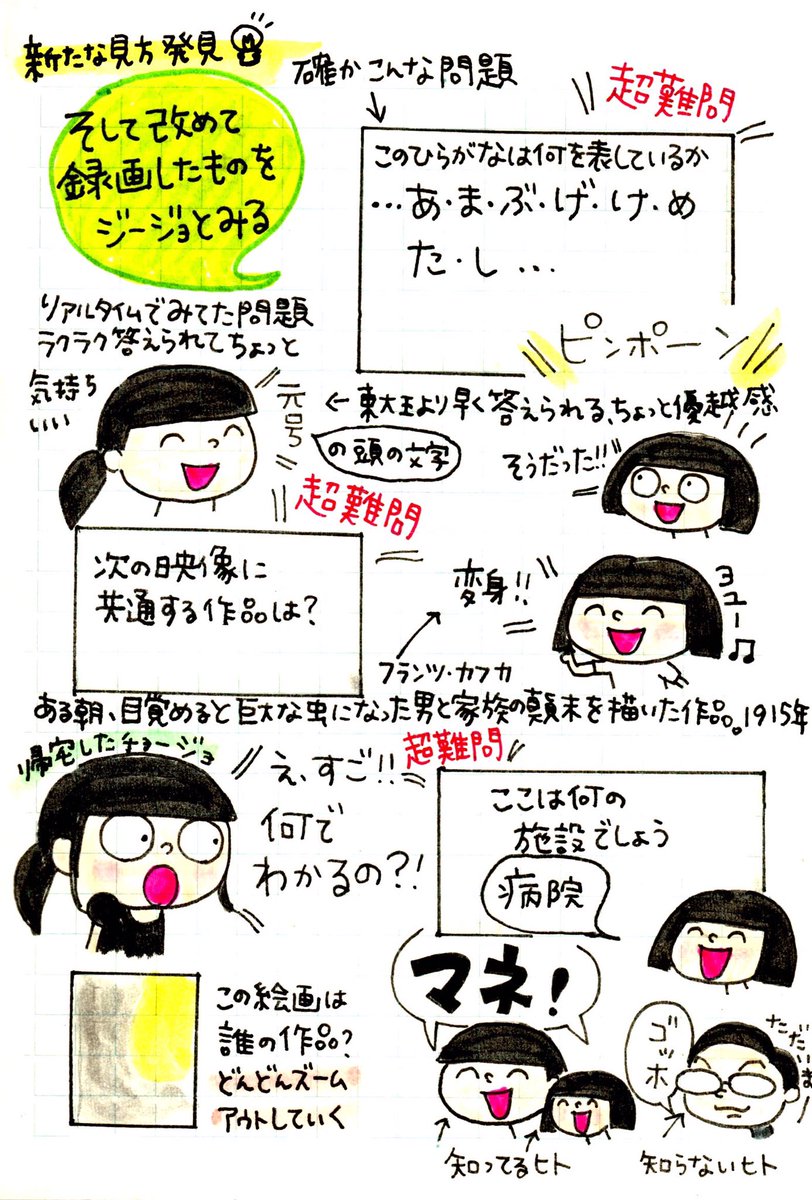 新たな見方発見
そして改めて
録画したものを
ジージョとみる
確かこんな問題
超難問
このひらがなは何を表しているか
…あ・ま・ぶ・げ・け・め
た・し…
ピンポーン
リアルタイムでみてた問題
ラクラク答えられてちょっと
気持ち
いい
元号
の頭の文字
←東大王より早く答えられる、ちょっと優越感
そうだった!!
超難問
次の映像に
共通する作品は?
変身!!
ヨユー♫
フランツ・カフカ
ある朝、目覚めると巨大な虫になった男と家族の顛末を描いた作品。1915年
帰宅したチョージョ
え、すご!!
何で
わかるの?!
超難問
ここは何の
施設でしょう
病院
この絵画は
誰の作品?
どんどんズーム
アウトしていく
マネ!
ゴッホ
ただいまー
知ってるヒト
知らないヒト